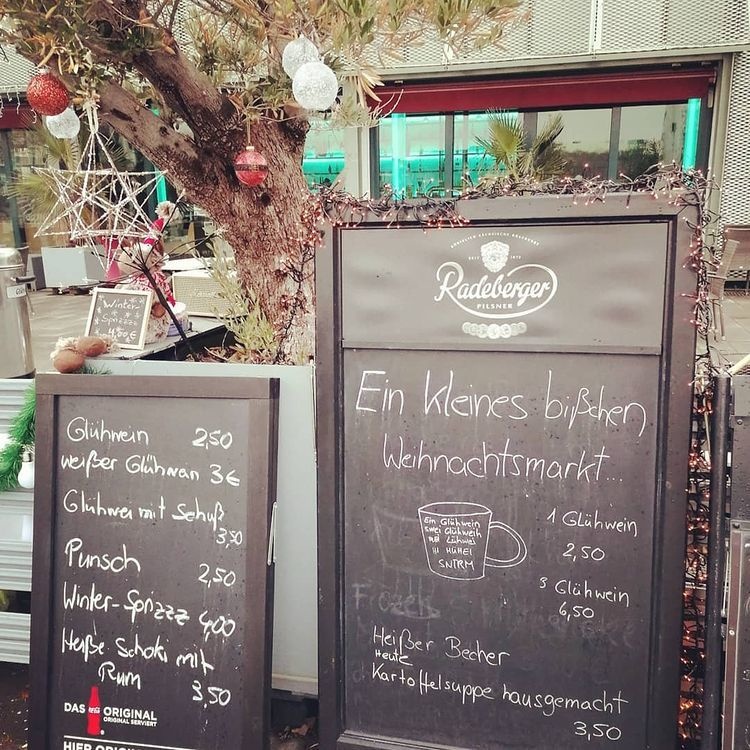 Winter
Sprizzz
4,00 €
Glühwein 2,50
weißer Glühwein 3€
Glühwei mit Schuß
3,50
Punsch 2,50
Winter-Sprizzz 4,00
Heiße Schoki mit
Rum 3,50
DAS ORIGINAL
ORIGINAL SERVIERT
Radeberger
PILSNER
Ein kleines bißchen
Weihnachtsmarkt...
Ein Glühwein
zwei Glühweih
Lühwei
III HÜHEI
SNTRM
1 Glühwein
2,50
3 Glühwein
6,50
Heißer Becher
Heute
Kartoffelsuppe hausgemacht
3,50